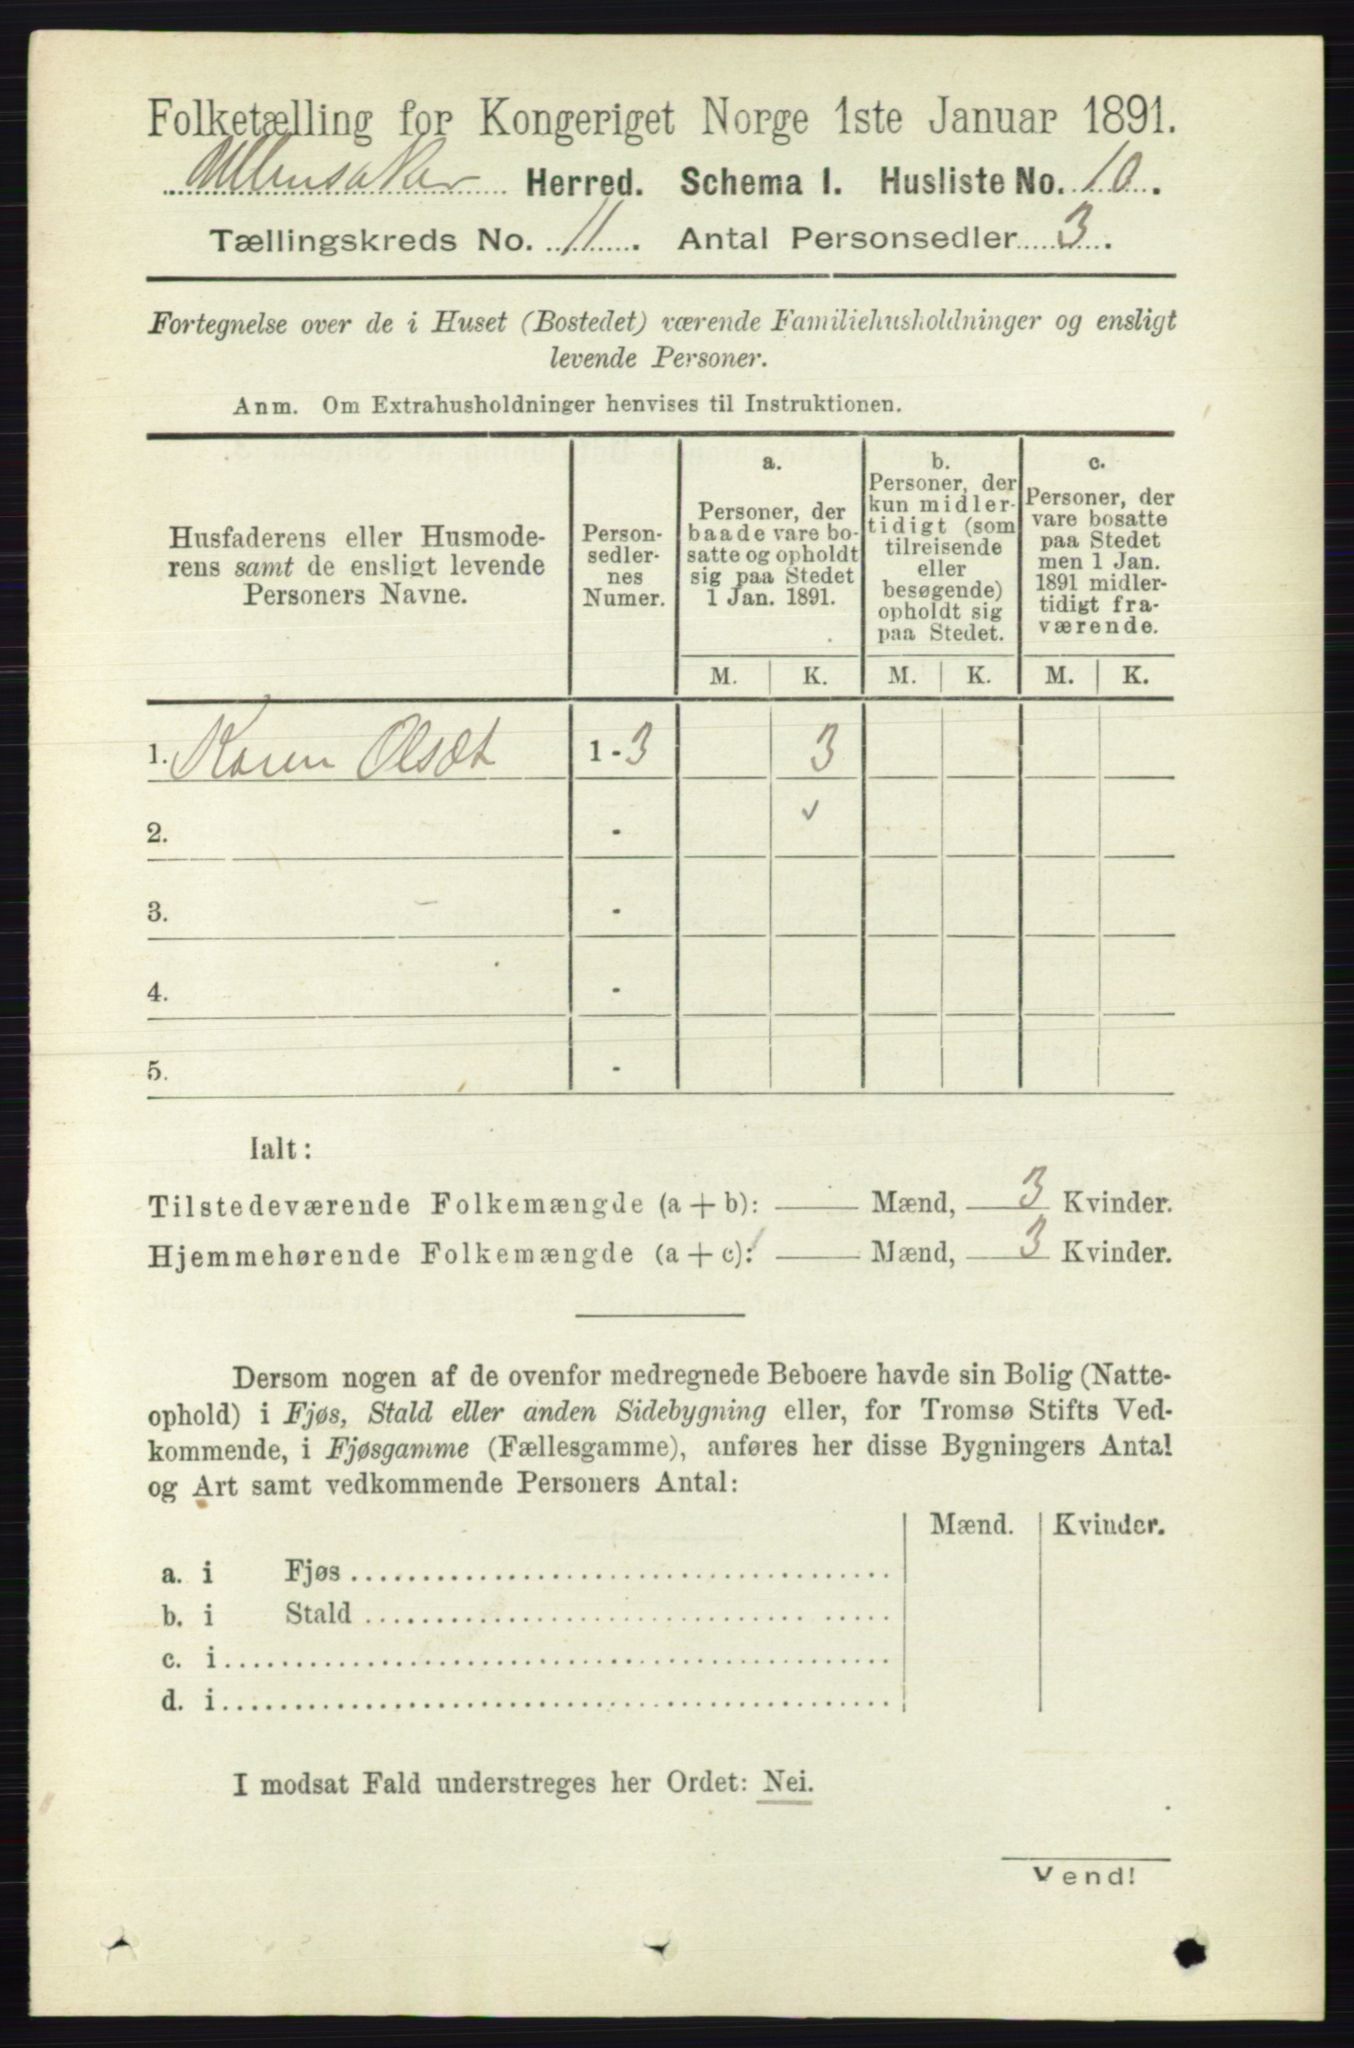 Folketælling for Kongeriget Norge 1ste Januar 1891.
Ullensaker Herred. Schema I. Husliste No. 10.
Tællingskreds No. 11. Antal Personsedler 3.
Fortegnelse over de i Huset (Bostedet) værende Familiehusholdninger og ensligt
levende Personer.
Anm. Om Extrahusholdninger henvises til Instruktionen.
Husfaderens eller Husmode-
rens samt de ensligt levende
Personers Navne.
Person-
sedler-
nes
Numer.
a.
Personer, der
baade vare bo-
satte og opholdt
sig paa Stedet
1 Jan. 1891.
b.
Personer, der
kun midler-
tidigt (som
tilreisende
eller
besøgende)
opholdt sig
paa Stedet.
c.
Personer, der
vare bosatte
paa Stedet
men 1 Jan.
1891 midler-
tidigt fra-
værende.
M. K. M. K. M. K.
1. Karen Olsæt 1-3 3
2. - ✓
3. -
4. -
5. -
Ialt:
Tilstedeværende Folkemængde (a + b): Mænd, 3 Kvinder.
Hjemmehørende Folkemængde (a + c): Mænd, 3 Kvinder.
Dersom nogen af de ovenfor medregnede Beboere havde sin Bolig (Natte-
ophold) i Fjøs, Stald eller anden Sidebygning eller, for Tromsø Stifts Ved-
kommende, i Fjøsgamme (Fællesgamme), anføres her disse Bygningers Antal
og Art samt vedkommende Personers Antal:
Mænd. Kvinder.
a. i Fjøs
b. i Stald
c. i
d. i
I modsat Fald understreges her Ordet: Nei.
Vend!